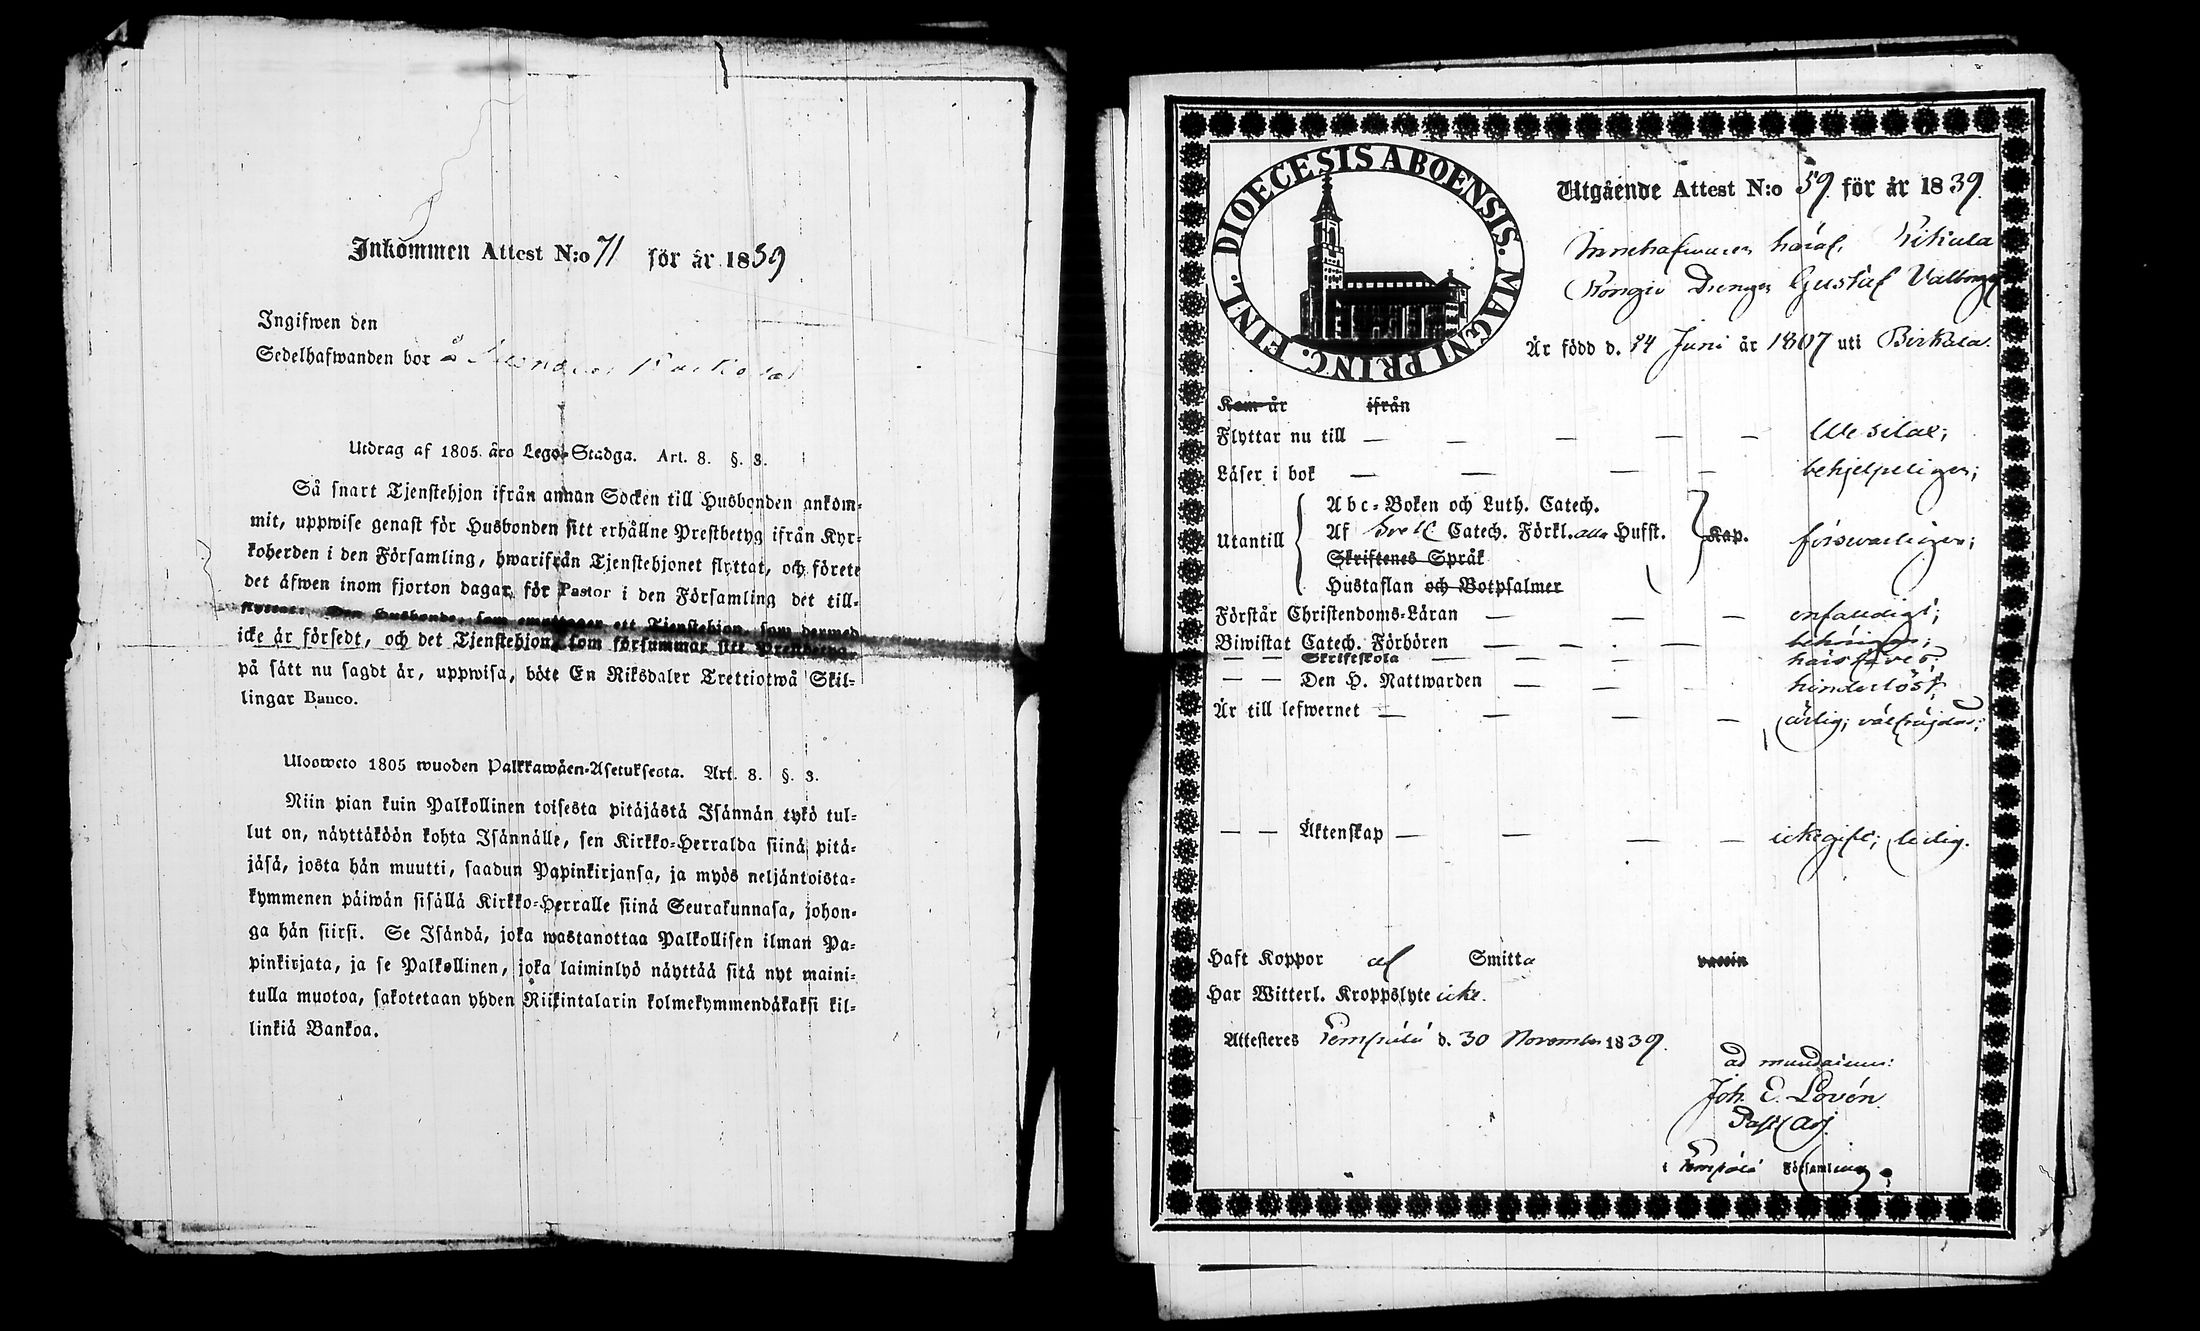 Inkommen Attest N:o 71 för år 1839
Ingifwen den
Sedelhafwanden bor å
Utdrag af 1805 års Lego-Stadga. Art. 8. §. 3.
Så snart Tjenstehjon ifrån annan Socken till Husbonden ankom-
mit, uppwise genast för Husbonden sitt erhållne Prestbetyg ifrån Kyr-
koherden i den Församling, hwarifrån Tjenstehjonet flyttat, och förete
det äfwen inom fjorton dagar för Pastor i den Församling det till-
flyttat. Den Husbonde, som emottager ett Tjenstehjon, som dermed
icke är försedt, och det Tjenstehjon, som försummar sitt Prestbetyg,
på sätt nu sagdt är, uppwisa, böte En Riksdaler Trettiotwå Skil-
lingar Banco.
Ulosweto 1805 wuoden Palkkawäen-Asetuksesta. Art. 8. §. 3.
Niin pian kuin Palkollinen toisesta pitäjästä Isännän tykö tul-
lut on, näyttäköön kohta Isännälle, sen Kirkko-Herralda siinä pitä-
jäsä, josta hän muutti, saadun Papinkirjansa, ja myös neljäntoista-
kymmenen päiwän sisällä Kirkko-Herralle siinä Seurakunnasa, johon-
ga hän siirsi. Se Isändä, joka wastanottaa Palkollisen ilman Pa-
pinkirjata, ja se Palkollinen, joka laiminlyö näyttää sitä nyt maini-
tulla muotoa, sakotetaan yhden Riikintalarin kolmekymmendäkaksi kil-
linkiä Bankoa.
DIOECESIS ABOENSIS. MAGNI PRINC. FINL.
Utgående Attest N:o 59 för år 1839.
Innehafwaren häraf,
Drengen Gustaf
Är född d. 24 Juni år 1807 uti Birkala.
Kom år ifrån
Flyttar nu till — — — — — Wesilax;
Läser i bok — — — — behjelpeligen;
Abc-Boken och Luth. Catech.
Utantill Af Catech. Förkl. alla Hufst. Kap. försvarligen;
Skriftenes Språk
Hustaflan och Botpsalmer
Förstår Christendoms-Läran — — — enfaldigt;
Biwistat Catech. Förhören — — - — behörigen;
— — Skriftskola — — — —
— — Den H. Nattwarden — — - hinderlöst;
Är till lefwernet — — — — ärlig; välfrägdad;
— — Äktenskap — — — — icke gift; ledig.
Haft Koppor af Smitta vaccin
Har Witterl. Kroppslyte icke.
Attesteres d. 30 November 1839.
ad mundatum:
Joh. E. Lovén.
Past. Adj.
i Församling.